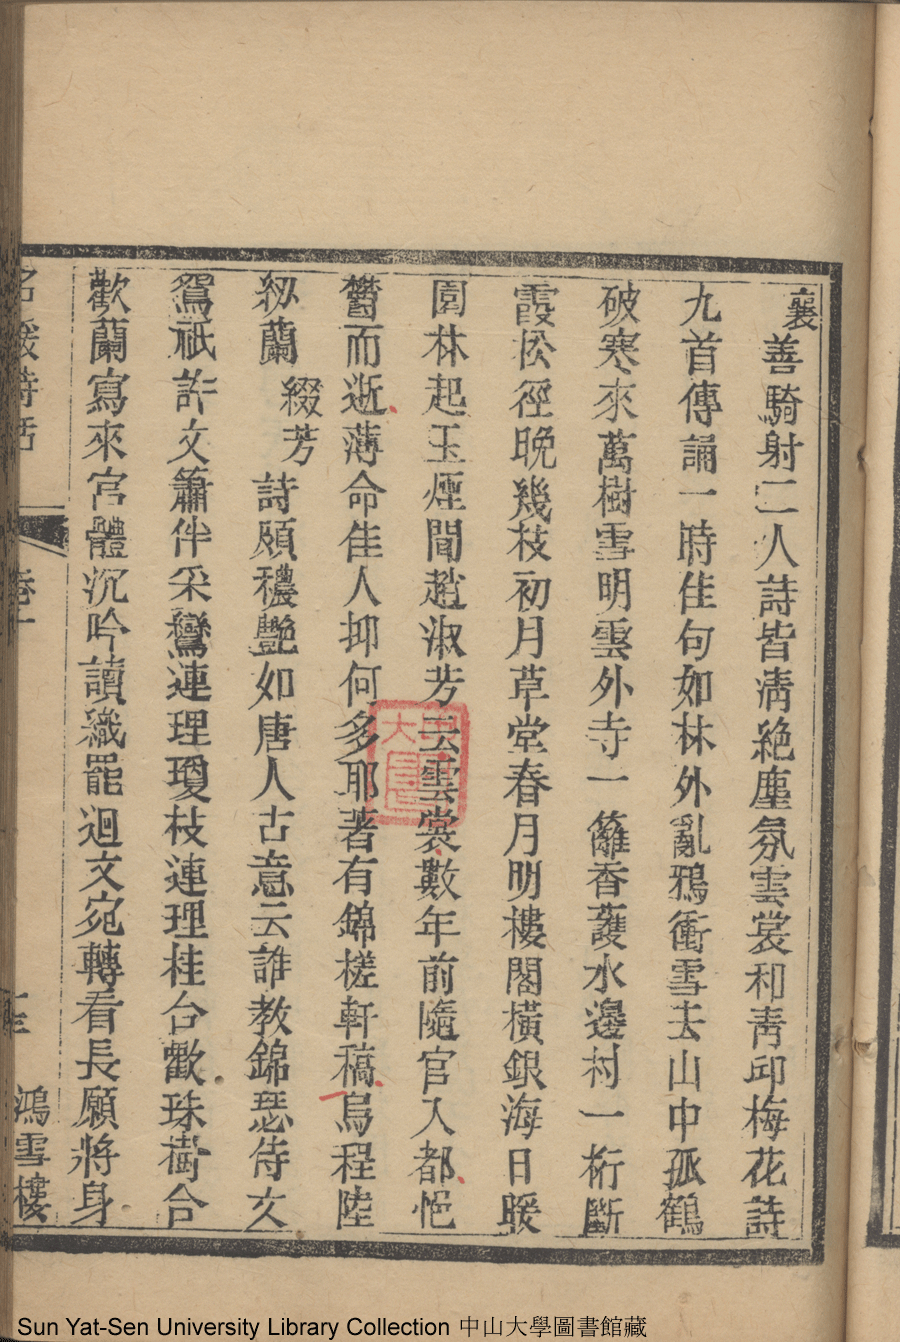 襄善騎射二人詩皆清絶塵氛雲裳和靑邱梅花詩
九首傳誦一時佳句如林外亂鴉衝雪去山中孤鶴
破寒來萬樹雪明雲外寺一籬香護水邊村一桁斷
霞松徑晚幾枝初月草堂春月明樓閣橫銀海日暖
園林起玉煙閨趙淑芳云雲裳數年前隨官入都悒
鬱而逝薄命佳人抑何多耶著有錦槎軒稿烏程陸
紉蘭綴芳詩頗穠艷如唐人古意云誰教錦瑟侍文
鴛祇許文簫伴采鸞連理瓊枝連理桂合歡珠樹合
歡蘭寫來宮體沉吟讀織罷迴文宛轉看長願將身
名媛詩話 卷十 鴻雪樓
Sun Yat-Sen University Library Collection 中山大學圖書館藏